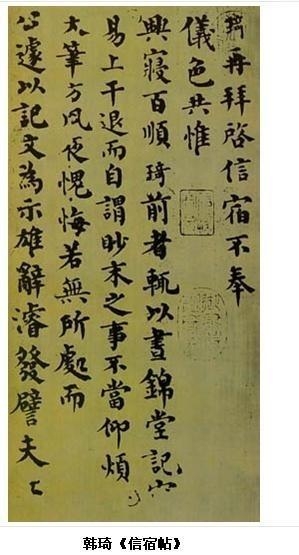 琦再拜啓信宿不奉
儀色共惟
興寢百順琦前者輒以晝錦堂記容
易上干退而自謂眇末之事不當仰煩
大筆方夙夜愧悔若無所處而
公遽以記文為示雄辭濬發譬夫
韩琦《信宿帖》